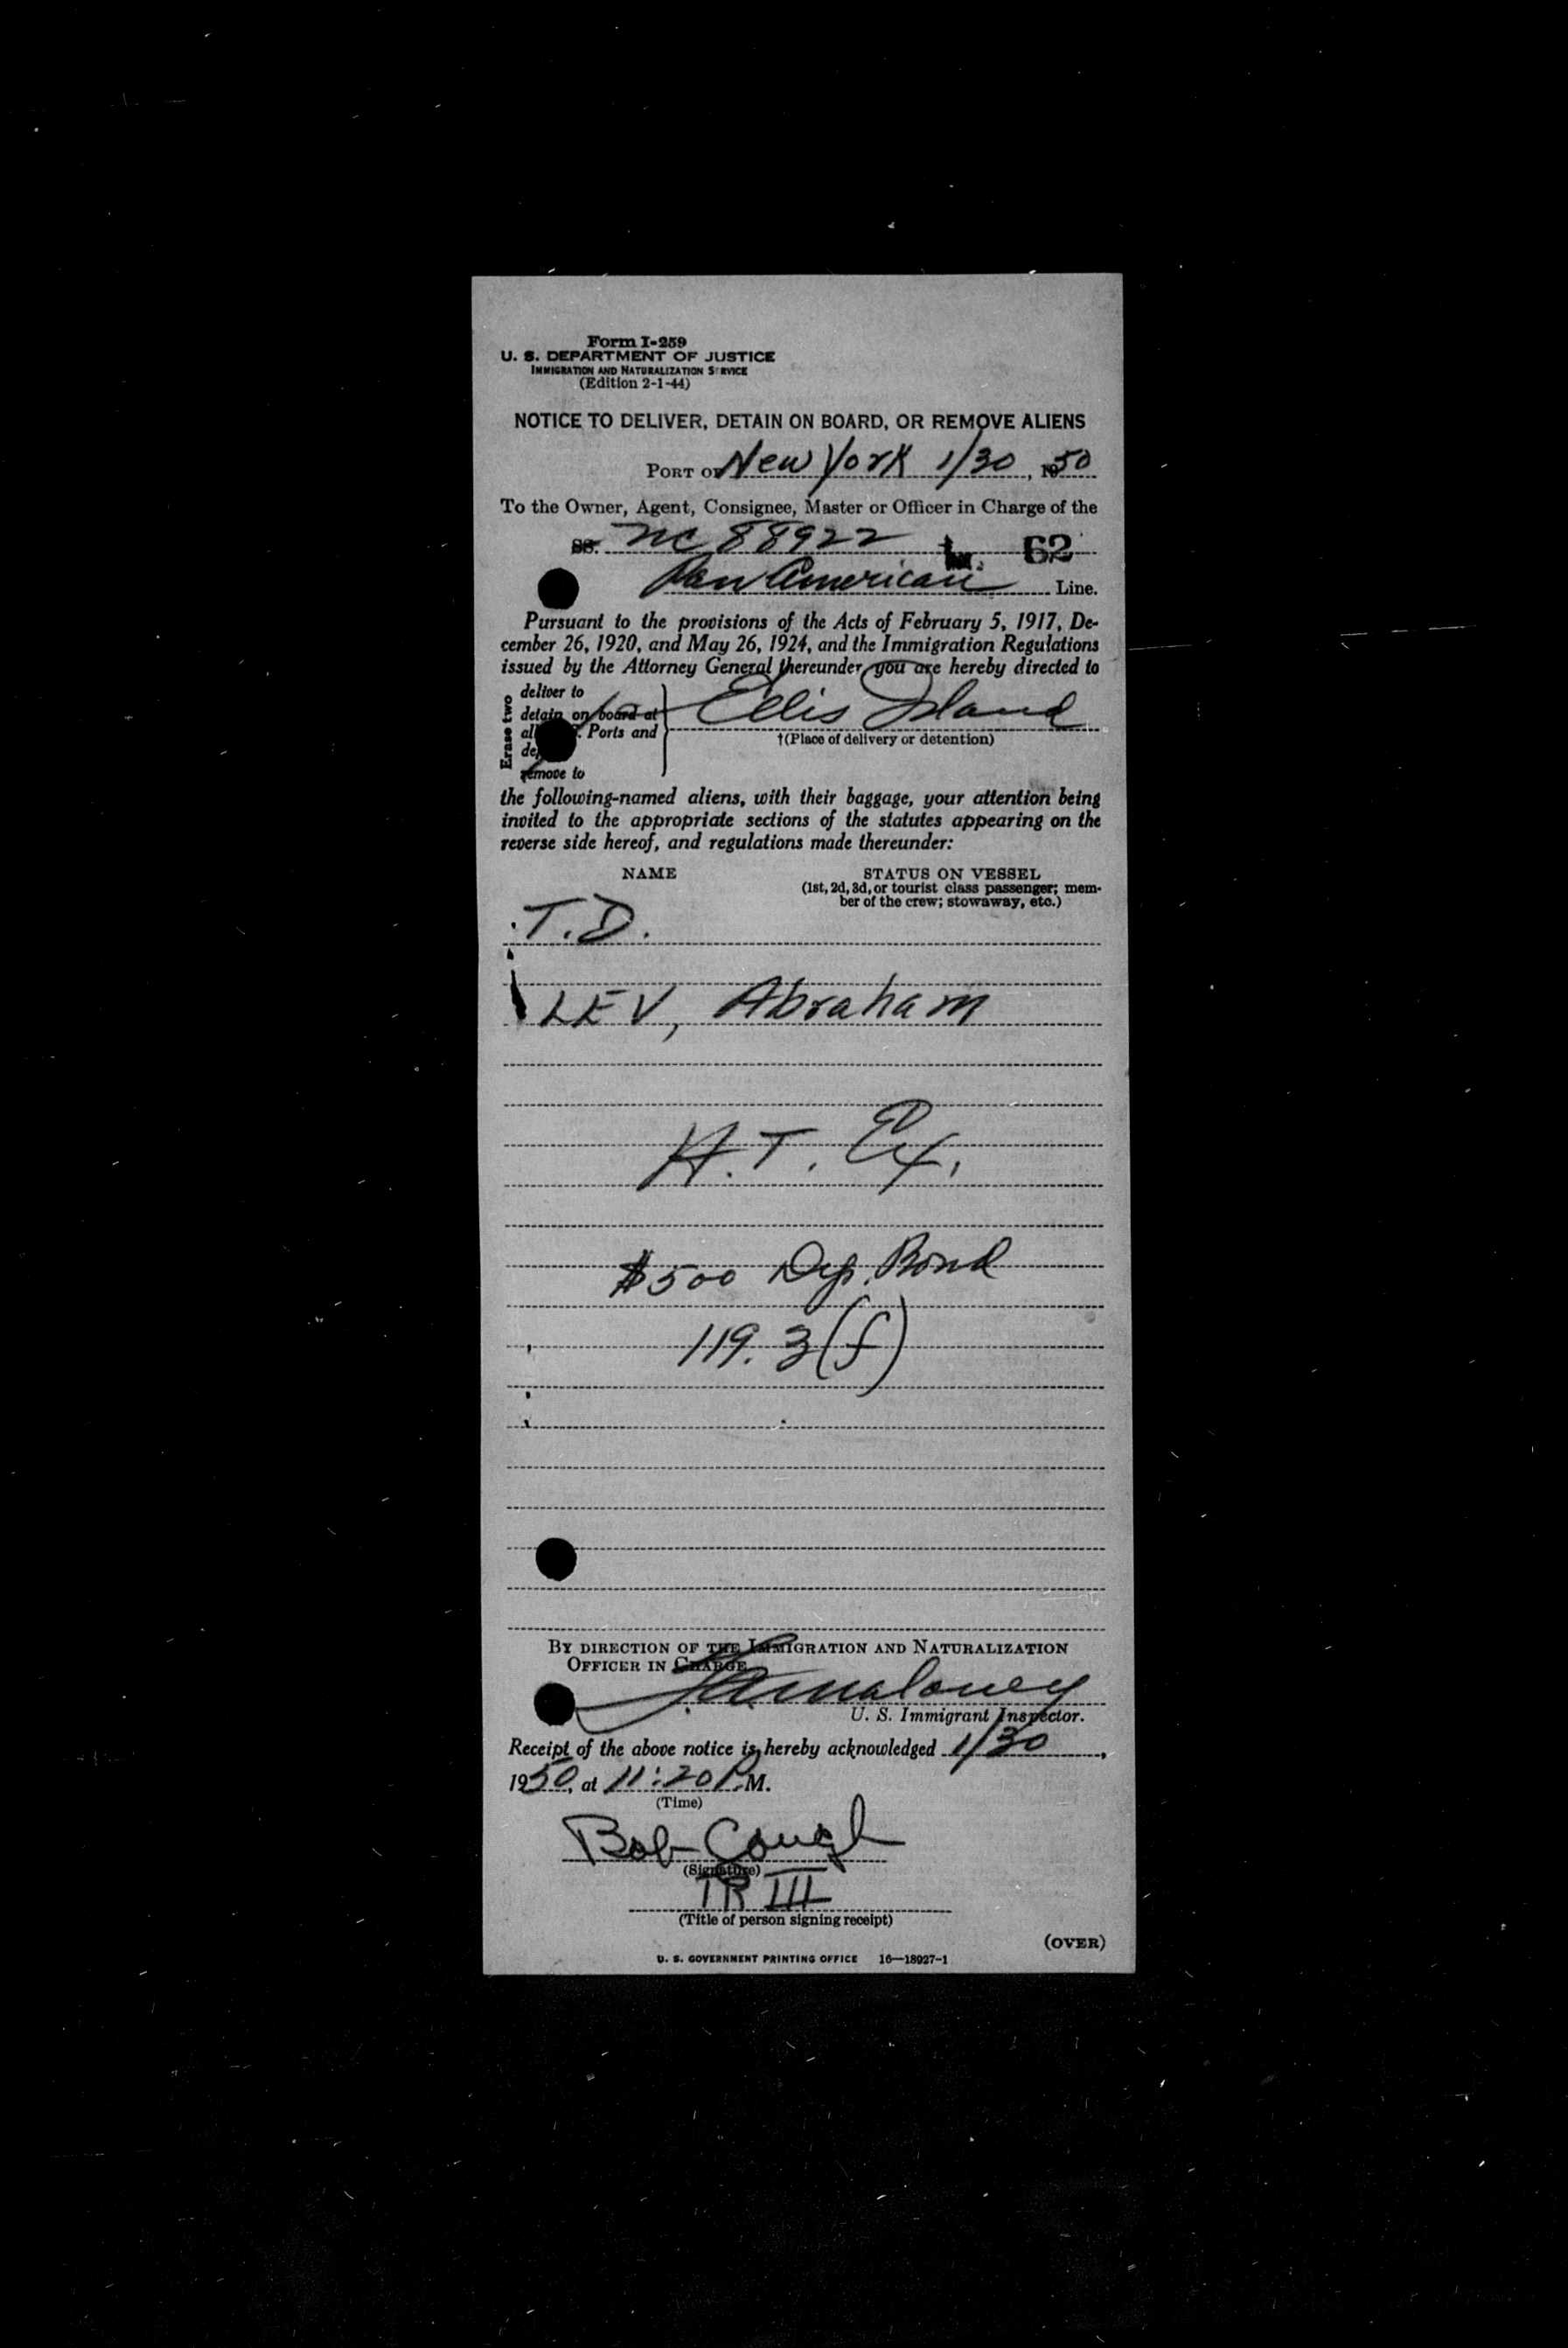 Form I-259
U. S. DEPARTMENT OF JUSTICE
IMMIGRATION AND NATURALIZATION SERVICE
(Edition 2-1-44)
NOTICE TO DELIVER, DETAIN ON BOARD, OR REMOVE ALIENS
PORT OF New York 1/30, 1950
To the Owner, Agent, Consignee, Master or Officer in Charge of the
SS. NC 88922 62
Pan American Line.
Pursuant to the provisions of the Acts of February 5, 1917, De-
cember 26, 1920, and May 26, 1924, and the Immigration Regulations
issued by the Attorney General thereunder you are hereby directed to
Erase two
deliver to
detain on board at
Ports and
remove to
Ellis Island
†(Place of delivery or detention)
the following-named aliens, with their baggage, your attention being
invited to the appropriate sections of the statutes appearing on the
reverse side hereof, and regulations made thereunder:
NAME STATUS ON VESSEL
(1st, 2d, 3d, or tourist class passenger; mem-
ber of the crew; stowaway, etc.)
T.D.
LEV, Abraham
H.T.
$500 Dep. Bond
119.3(f)
BY DIRECTION OF THE IMMIGRATION AND NATURALIZATION
OFFICER IN CHARGE
Maloney
U. S. Immigrant Inspector.
Receipt of the above notice is hereby acknowledged 1/30,
1950, at 11:20 P.M.
(Time)
Bob
(Signature)
TR III
(Title of person signing receipt)
(OVER)
U. S. GOVERNMENT PRINTING OFFICE 16—18927-1